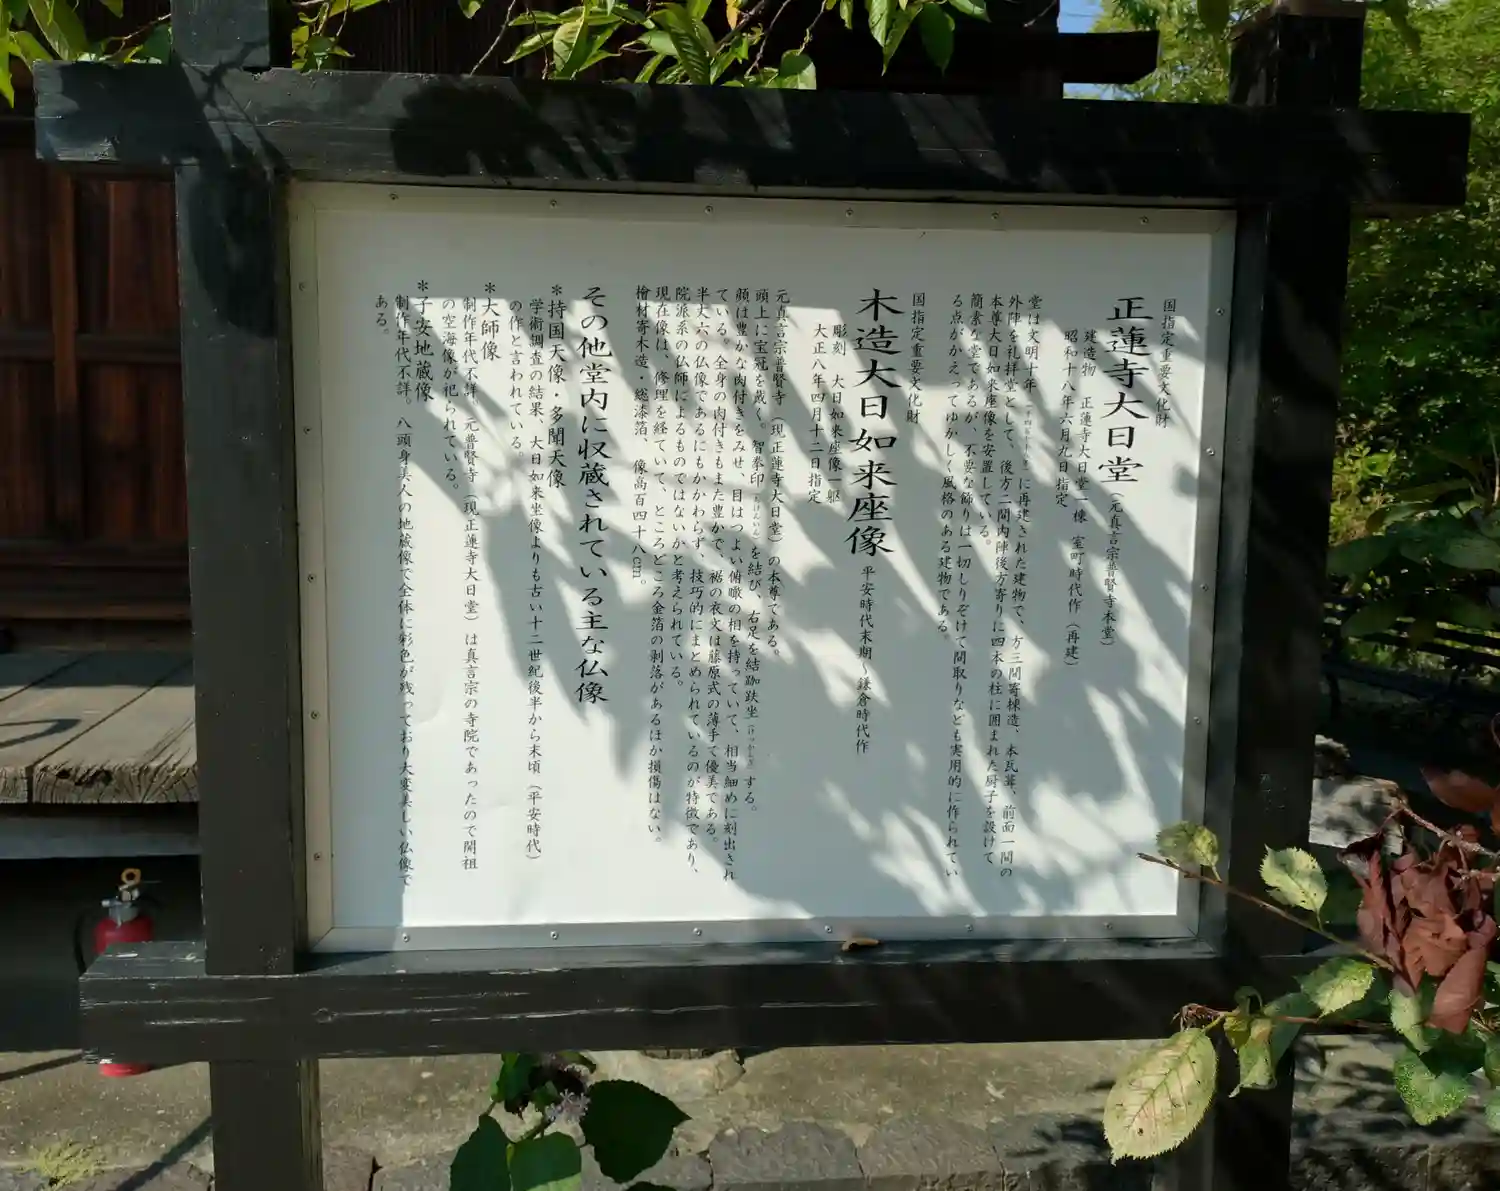 国指定重要文化財
正蓮寺大日堂(元真言宗普賢寺本堂)
建造物 正蓮寺大日堂一棟 室町時代作(再建)
昭和十八年六月九日指定
堂は文明十年に再建された建物で、方三間寄棟造、本瓦葺、前面一間の
外陣を礼拝堂として、後方二間内陣後方寄りに四本の柱に囲まれた厨子を設けて
本尊大日如来座像を安置している。
簡素な堂であるが、不要な飾りは一切しりぞけて間取りなども実用的に作られてい
る点がかえってゆかしく風格のある建物である。
国指定重要文化財
木造大日如来座像 平安時代末期~鎌倉時代作
彫刻 大日如来座像一躯
大正八年四月十二日指定
元真言宗普賢寺(現正蓮寺大日堂)の本尊である。
頭上に宝冠を戴く。智拳印(ちけんいん)を結び、右足を結跏趺坐(けっかふざ)する。
顔は豊かな肉付きをみせ、目はつよい俯瞰の相を持っていて、相当細めに刻出され
ている。全身の肉付きもまた豊かで、裾の衣文は藤原式の薄手で優美である。
半丈六の仏像であるにもかかわらず、技巧的にまとめられているのが特徴であり、
院派系の仏師によるものではないかと考えられている。
現在像は、修理を経ていて、ところどころ金箔の剥落があるほか損傷はない。
檜材寄木造・総漆箔、像高百四十八cm。
その他堂内に収蔵されている主な仏像
*持国天像・多聞天像
学術調査の結果、大日如来坐像よりも古い十二世紀後半から末頃(平安時代)
の作と言われている。
*大師像
制作年代不詳。元普賢寺(現正蓮寺大日堂)は真言宗の寺院であったので開祖
の空海像が祀られている。
*子安地蔵像
制作年代不詳。八頭身美人の地蔵像で全体に彩色が残っており大変美しい仏像で
ある。